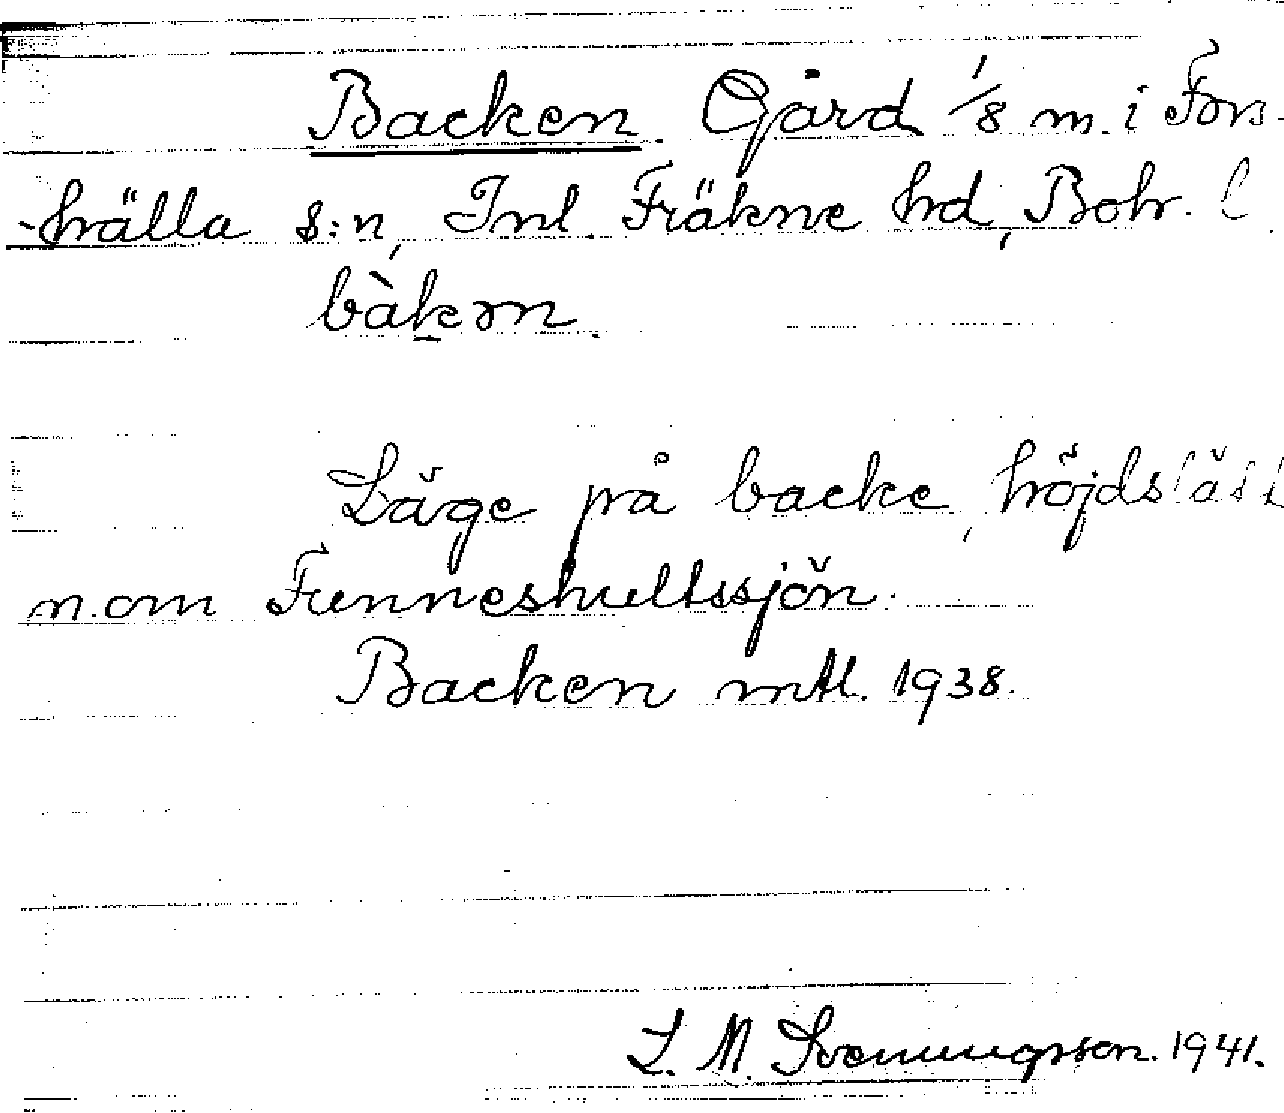 Backen. Gård 1/8 m. i Fors-
-hälla s:n, Inl. Fräkne hd, Boh. l
bàken.
Läge på backe, höjdsläst
n. om Funneshultssjön.
Backen mtl. 1938.
L. M. Svenungsson. 1941.